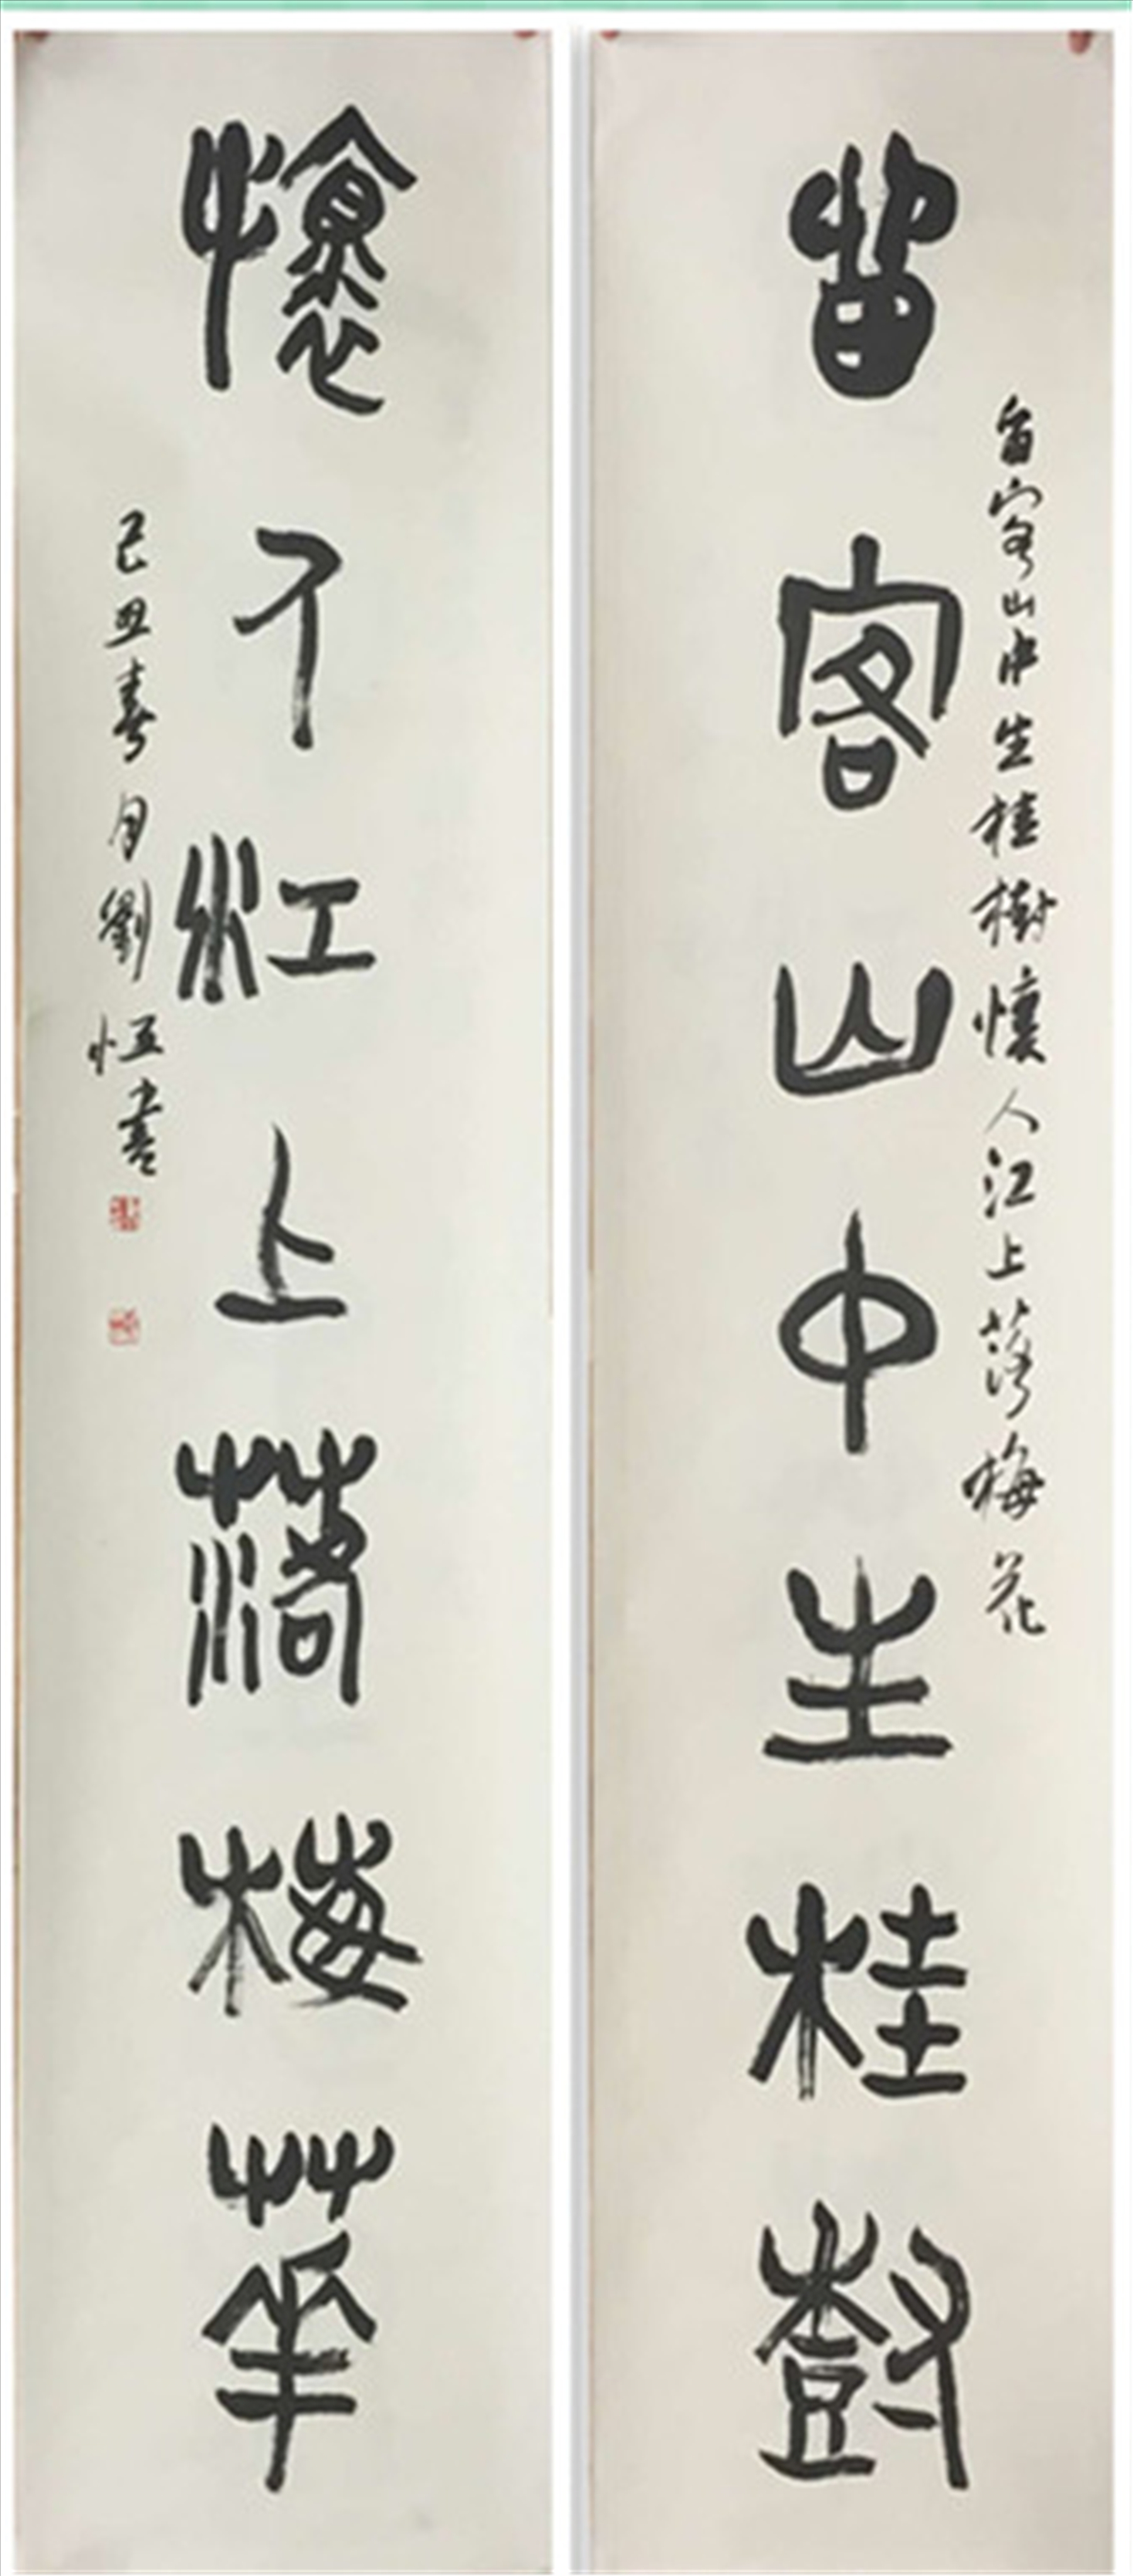 留客山中生桂樹
留客山中生桂樹懷人江上落梅花
懷人江上落梅華
己丑春月劉恆書